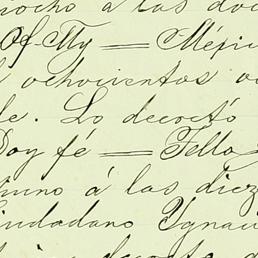 iocho á las doc
Of. My = Méxic
ochocientos o
fe. Lo decretó
Doy fé = Tello
nino á las diez
iudadano Ygnac